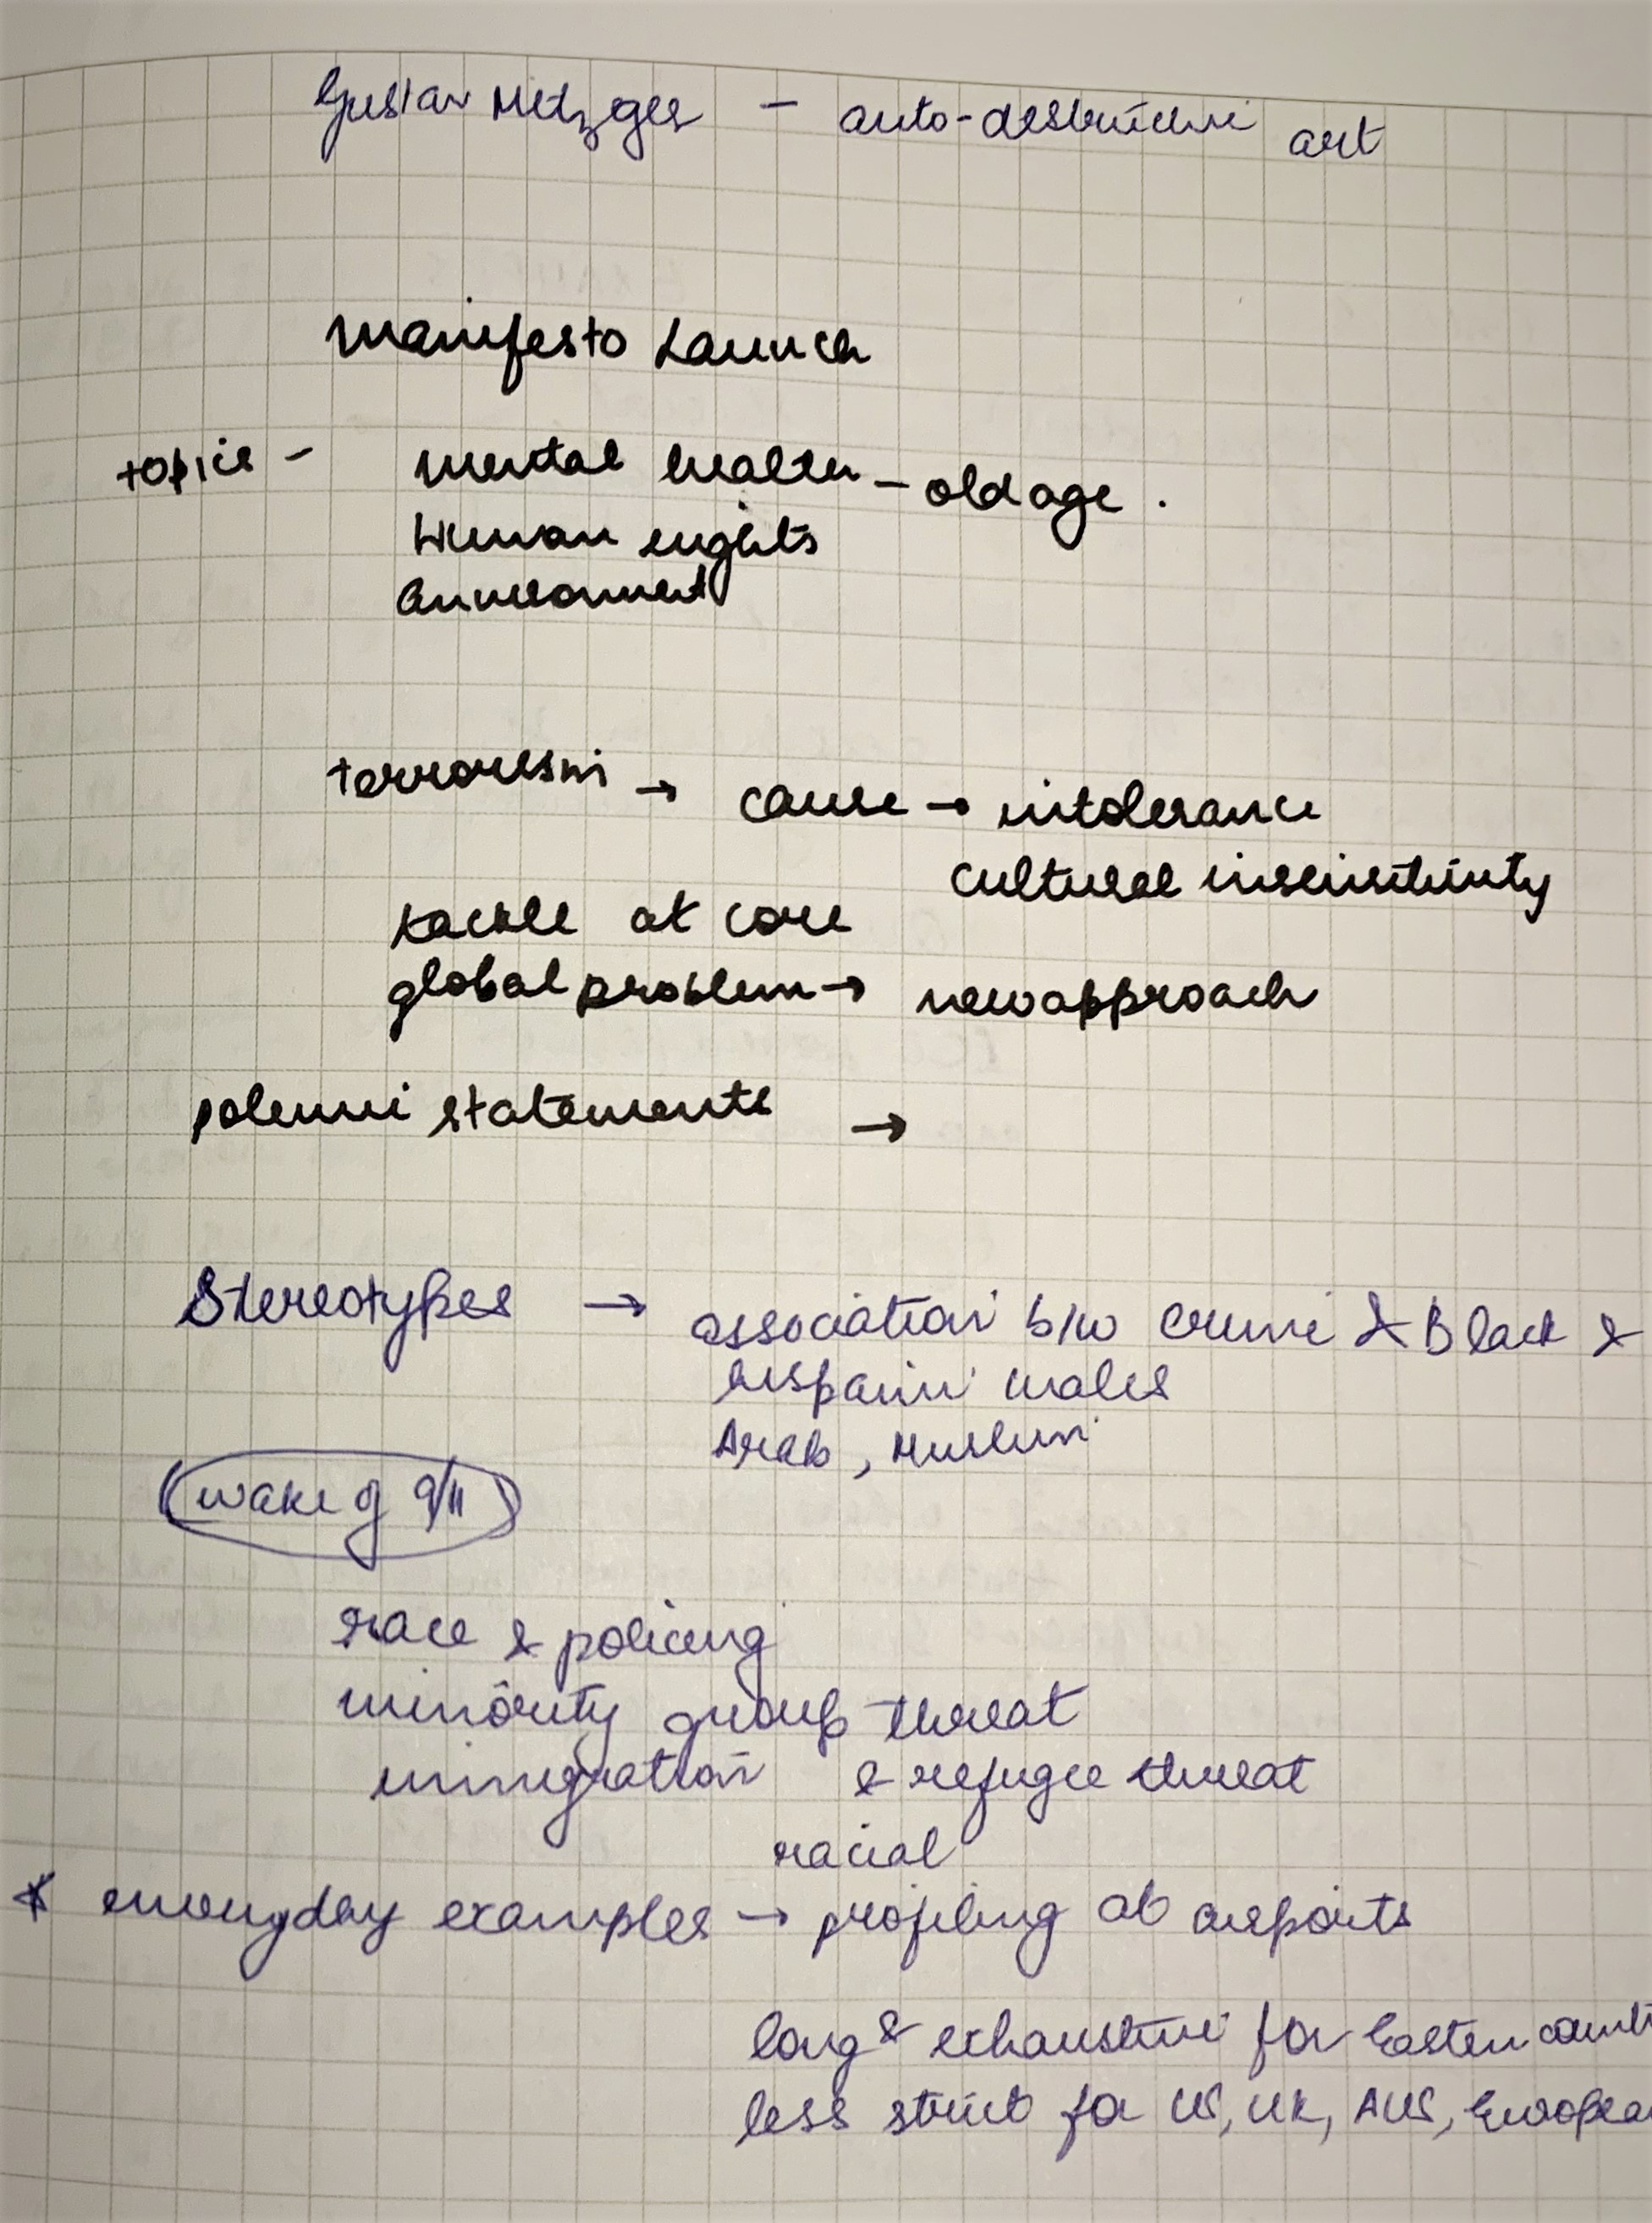 Gustav Metzger - auto-destructive art
Manifesto Launch
topic - mental health - old age.
Human rights
Environment
terrorism → cause → intolerance
cultural insensitivity
tackle at core
global problem → new approach
polemic statements →
Stereotypes → association b/w crime & Black &
hispanic males
Arab, Muslim
(wake of 9/11)
race & policing
minority group threat
immigration & refugee threat
racial
* everyday examples → profiling at airports
long & exhaustive for Eastern countri
less strict for US, UK, AUS, European